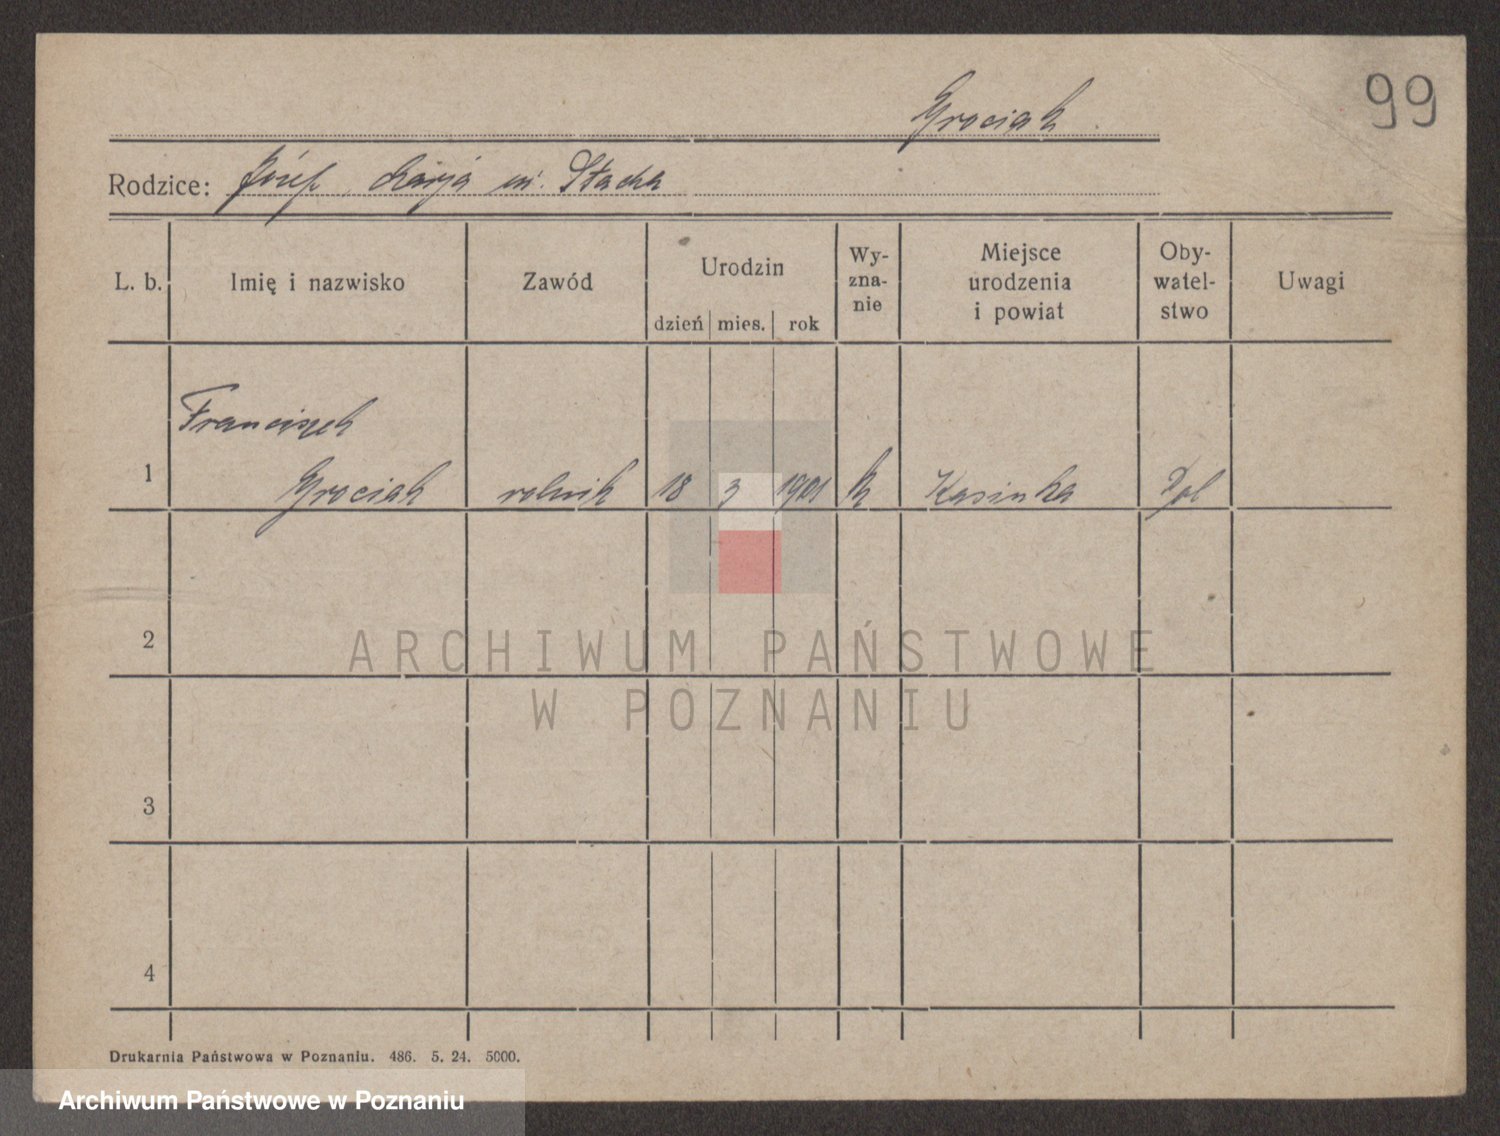 99
Grociak
Rodzice: Józef, Marja ur. Stacha
L. b.
Imię i nazwisko
Zawód
Urodzin
dzień mies. rok
Wy-
zna-
nie
Miejsce
urodzenia
i powiat
Oby-
watel-
stwo
Uwagi
Franciszek
1 Grociak rolnik 18 3 1901 k Kasinka Pol
2
3
4
ARCHIWUM PAŃSTWOWE
W POZNANIU
Drukarnia Państwowa w Poznaniu. 486. 5. 24. 5000.
Archiwum Państwowe w Poznaniu